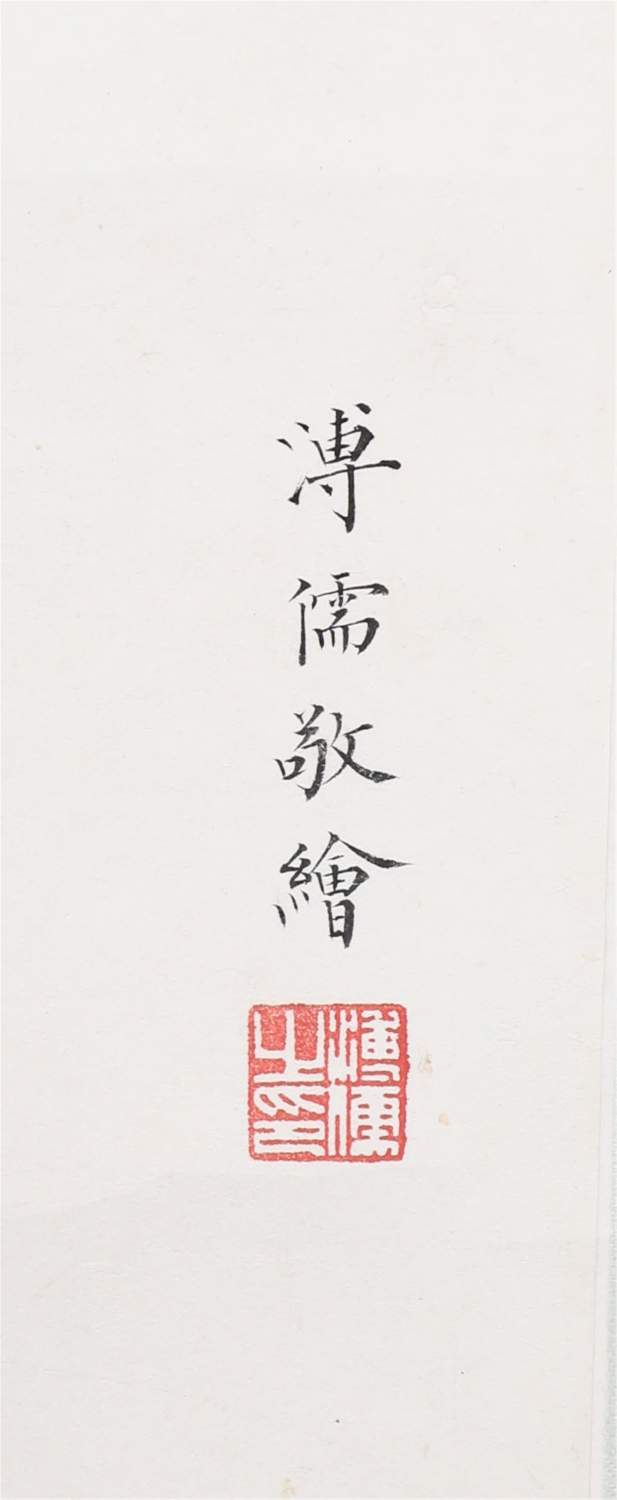 溥儒敬繪
溥儒
之印